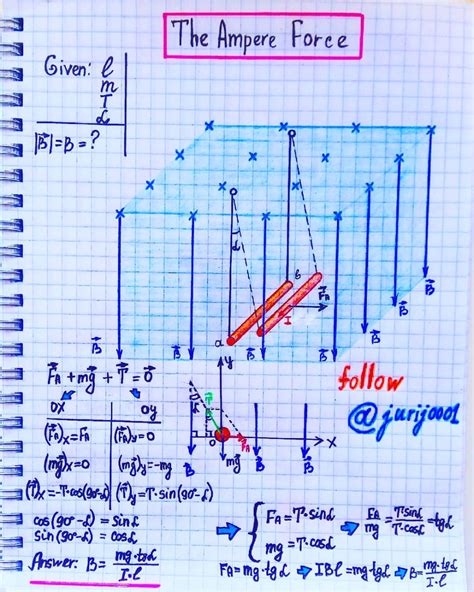 The Ampere Force
Given: l
m
I
α
|B⃗| = B = ?
α
a
b
F⃗A
I
B⃗ B⃗ B⃗ B⃗ B⃗ B⃗ B⃗
F⃗A + mg⃗ + T⃗ = 0⃗
OX OY
(F⃗A)x = FA (F⃗A)y = 0
(mg⃗)x = 0 (mg⃗)y = -mg
(T⃗)x = -T·cos(90-α) (T⃗)y = T·sin(90-α)
cos(90°-α) = sinα
sin(90-α) = cosα
Answer: B = mg·tgα / I·l
y
T⃗
α
0
F⃗A
x
B⃗ mg⃗ B⃗ B⃗
follow
@jurij0001
FA = T·sinα
mg = T·cosα
FA / mg = T·sinα / T·cosα = tgα
FA = mg·tgα ⇒ IBl = mg·tgα ⇒ B = mg·tgα / I·l